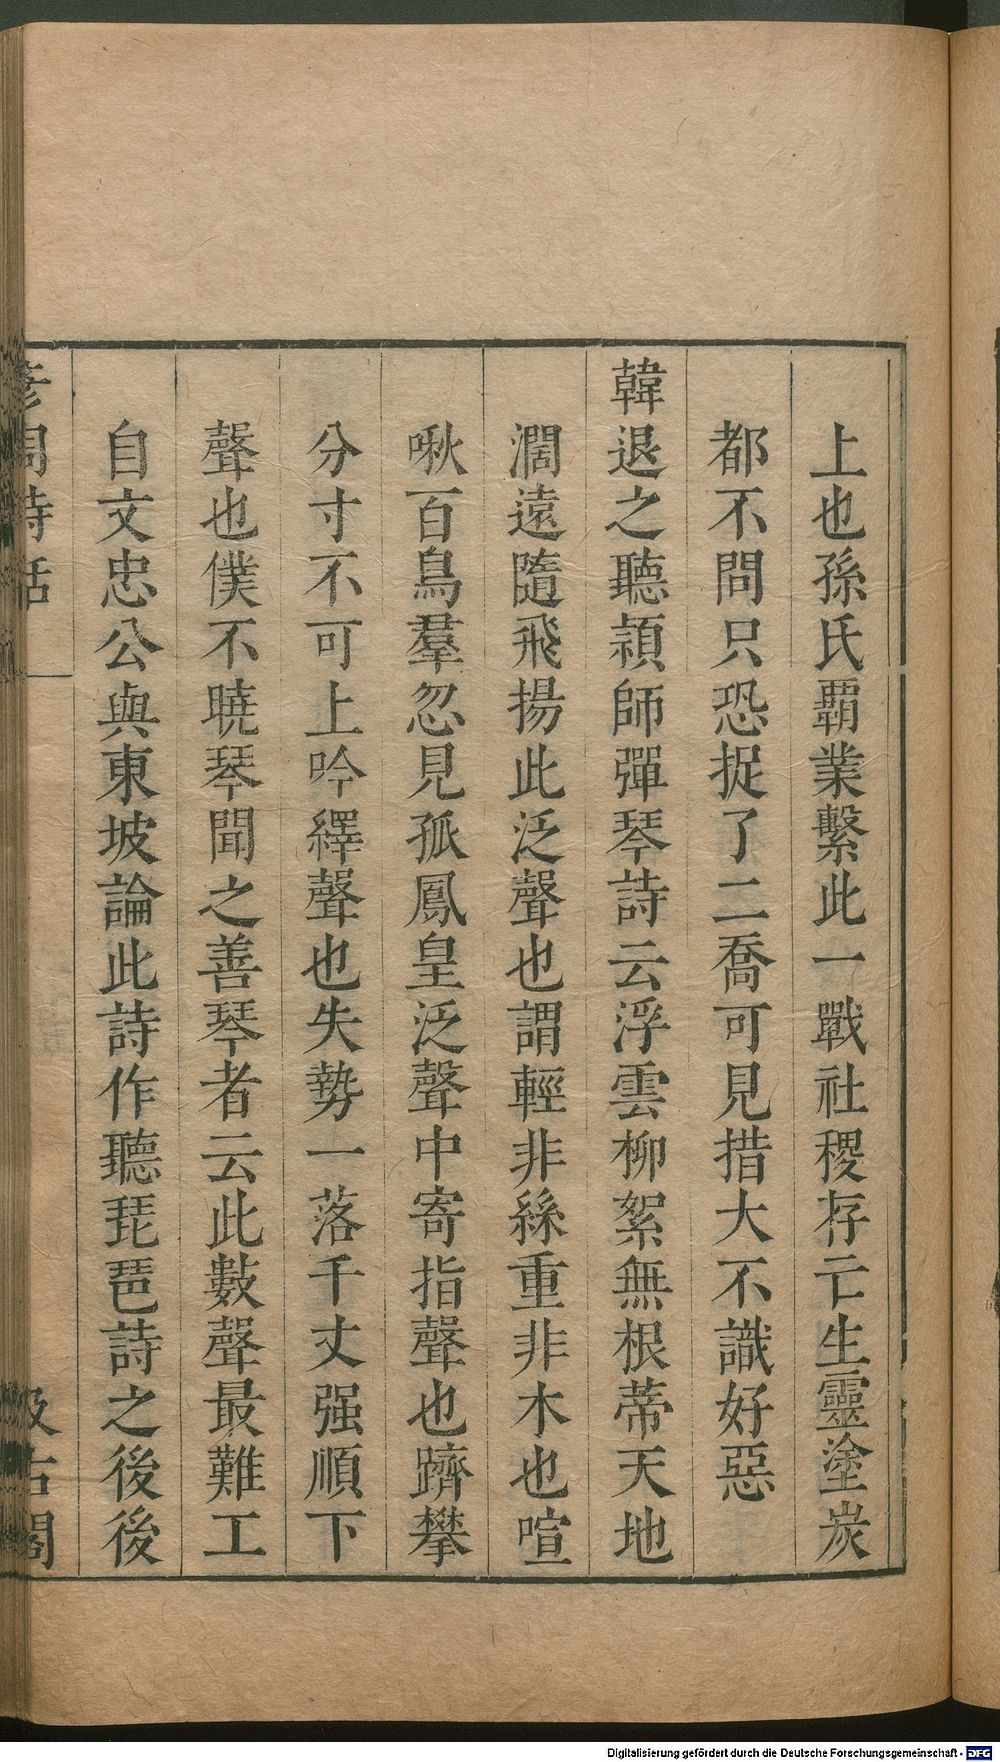 上也孫氏覇業繫此一戰社稷存亡生靈塗炭
都不問只恐捉了二喬可見措大不識好惡
韓退之聽頴師彈琴詩云浮雲柳絮無根蒂天地
濶遠隨飛揚此泛聲也謂輕非絲重非木也喧
啾百鳥羣忽見孤鳳皇泛聲中寄指聲也躋攀
分寸不可上吟繹聲也失勢一落千丈强順下
聲也僕不曉琴聞之善琴者云此數聲最難工
自文忠公與東坡論此詩作聽琵琶詩之後後
彥周詩話
汲古閣
Digitalisierung gefördert durch die Deutsche Forschungsgemeinschaft - DFG